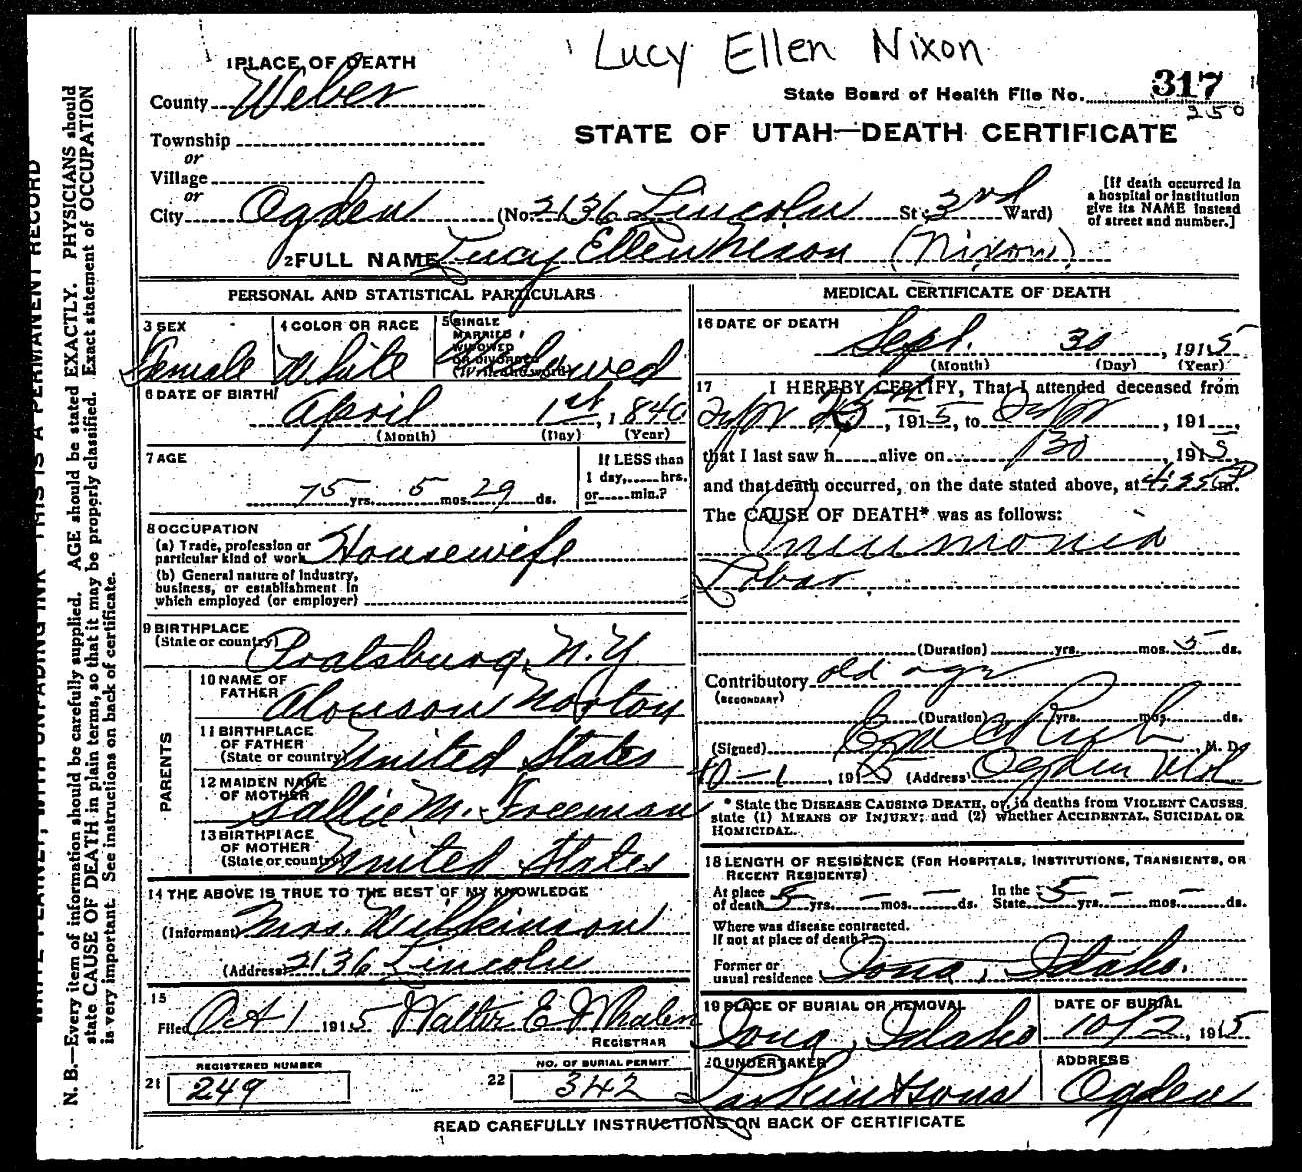 Lucy Ellen Nixon
1 PLACE OF DEATH
County Weber
State Board of Health File No. 317
250
STATE OF UTAH—DEATH CERTIFICATE
Township
or
Village
or
City Ogden (No. 2136 Lincoln St; 3rd Ward)
[If death occurred in
a hospital or institution
give its NAME instead
of street and number.]
2 FULL NAME Lucy Ellen Nixon (Nixon)
PERSONAL AND STATISTICAL PARTICULARS
3 SEX
Female
4 COLOR OR RACE
White
5 SINGLE
MARRIED
WIDOWED
OR DIVORCED
(Write the word)
Widowed
6 DATE OF BIRTH
April 1st, 1840
(Month) (Day) (Year)
7 AGE
75 yrs. 5 mos. 29 ds.
If LESS than
1 day, hrs.
or min.?
8 OCCUPATION
(a) Trade, profession or
particular kind of work Housewife
(b) General nature of industry,
business, or establishment in
which employed (or employer)
9 BIRTHPLACE
(State or country) Pratsburg, N.Y
PARENTS
10 NAME OF
FATHER Alonson Norton
11 BIRTHPLACE
OF FATHER
(State or country) United States
12 MAIDEN NAME
OF MOTHER Sallie M. Freeman
13 BIRTHPLACE
OF MOTHER
(State or country) United States
14 THE ABOVE IS TRUE TO THE BEST OF MY KNOWLEDGE
(Informant) Mrs. Wilkinson
(Address) 2136 Lincoln
15
Filed Oct 1 1915 Walter E Whalen
REGISTRAR
21 REGISTERED NUMBER
249
22 NO. OF BURIAL PERMIT
342
MEDICAL CERTIFICATE OF DEATH
16 DATE OF DEATH
Sept. 30, 1915
(Month) (Day) (Year)
17 I HEREBY CERTIFY, That I attended deceased from
25, 1915, to , 191
that I last saw h alive on 30, 1915,
and that death occurred, on the date stated above, at 4:35 P m.
The CAUSE OF DEATH* was as follows:
Pneumonia
Lobar
(Duration) yrs. mos. 5 ds.
Contributory old age
(SECONDARY)
(Duration) yrs. mos. ds.
(Signed) Rich, M. D.
10-1, 1915 (Address) Ogden Utah
* State the DISEASE CAUSING DEATH, or, in deaths from VIOLENT CAUSES,
state (1) MEANS OF INJURY; and (2) whether ACCIDENTAL, SUICIDAL OR
HOMICIDAL.
18 LENGTH OF RESIDENCE (FOR HOSPITALS, INSTITUTIONS, TRANSIENTS, OR
RECENT RESIDENTS)
At place
of death 5 yrs. – mos. – ds. In the
State 5 yrs. – mos. – ds.
Where was disease contracted.
If not at place of death?
Former or
usual residence Iona, Idaho.
19 PLACE OF BURIAL OR REMOVAL
Iona, Idaho
DATE OF BURIAL
10/2, 1915
20 UNDERTAKER
Larkin & Sons
ADDRESS
Ogden
READ CAREFULLY INSTRUCTIONS ON BACK OF CERTIFICATE
WRITE PLAINLY, WITH UNFADING INK—THIS IS A PERMANENT RECORD
N. B.—Every item of information should be carefully supplied. AGE should be stated EXACTLY. PHYSICIANS should
state CAUSE OF DEATH in plain terms, so that it may be properly classified. Exact statement of OCCUPATION
is very important. See instructions on back of certificate.